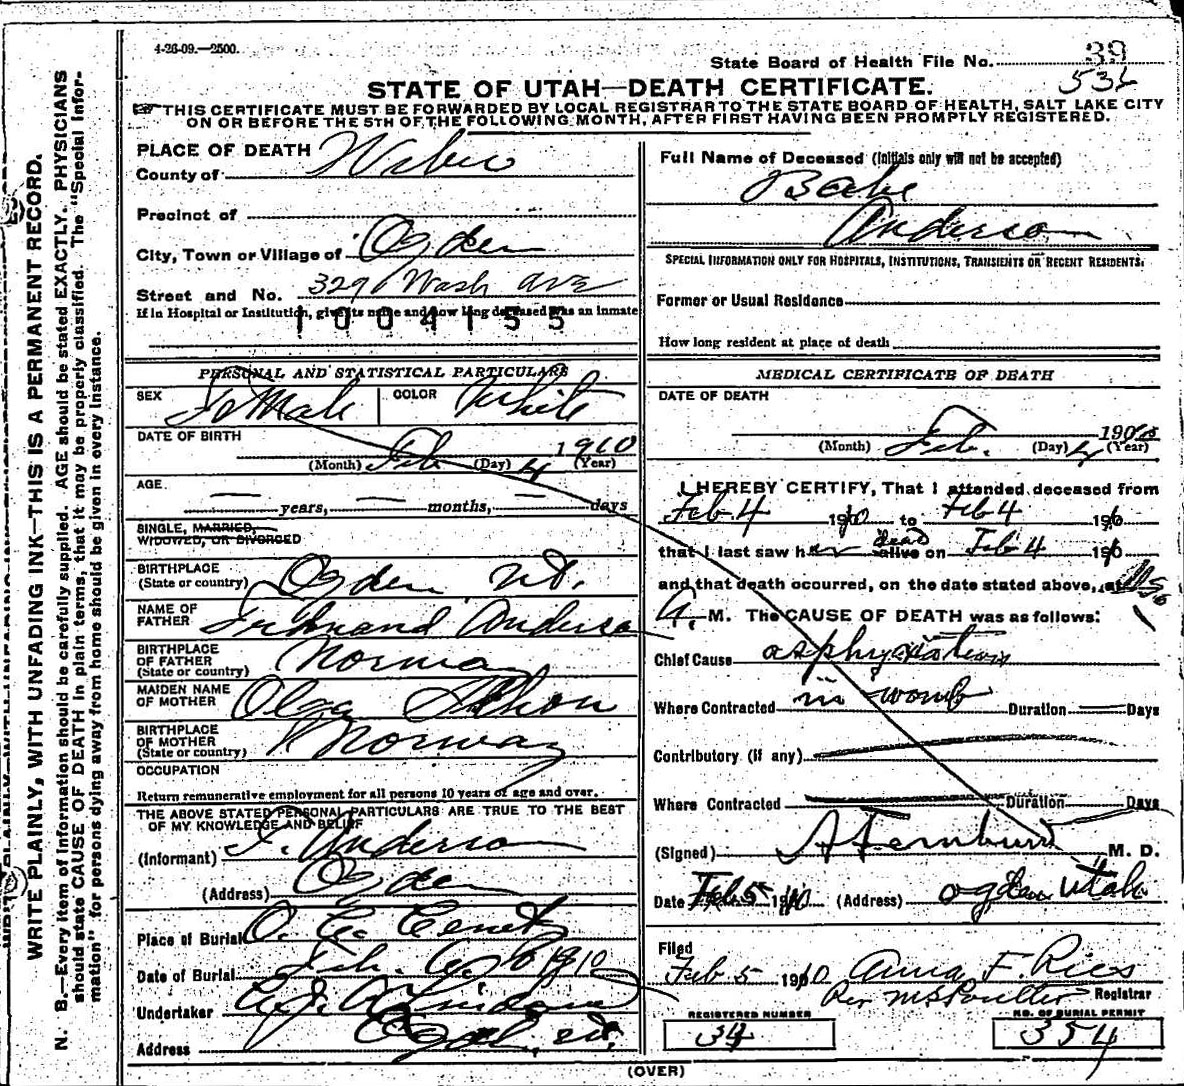 4-26-09.—2500.
State Board of Health File No. 39
536
STATE OF UTAH—DEATH CERTIFICATE.
THIS CERTIFICATE MUST BE FORWARDED BY LOCAL REGISTRAR TO THE STATE BOARD OF HEALTH, SALT LAKE CITY
ON OR BEFORE THE 5TH OF THE FOLLOWING MONTH, AFTER FIRST HAVING BEEN PROMPTLY REGISTERED.
WRITE PLAINLY, WITH UNFADING INK—THIS IS A PERMANENT RECORD.
N. B.—Every item of information should be carefully supplied. AGE should be stated EXACTLY. PHYSICIANS
should state CAUSE OF DEATH in plain terms, that it may be properly classified. The "Special Infor-
mation" for persons dying away from home should be given in every instance.
PLACE OF DEATH
County of Weber
Precinct of
City, Town or Village of Ogden
Street and No. 3290 Wash Ave
If in Hospital or Institution, give its name and how long deceased was an inmate
1004155
PERSONAL AND STATISTICAL PARTICULARS
SEX Female COLOR White
DATE OF BIRTH
(Month) Feb (Day) 4 1910 (Year)
AGE
years, months, days
SINGLE, MARRIED,
WIDOWED, OR DIVORCED
BIRTHPLACE
(State or country) Ogden Ut.
NAME OF
FATHER Anderson
BIRTHPLACE
OF FATHER
(State or country) Norway
MAIDEN NAME
OF MOTHER Olga
BIRTHPLACE
OF MOTHER
(State or country) Norway
OCCUPATION
Return remunerative employment for all persons 10 years of age and over.
THE ABOVE STATED PERSONAL PARTICULARS ARE TRUE TO THE BEST
OF MY KNOWLEDGE AND BELIEF
(Informant) F. Anderson
(Address) Ogden
Place of Burial O. C. Cemety
Date of Burial Feb. 6, 1910
Undertaker
Address Ogden, Ut.
Full Name of Deceased (Initials only will not be accepted)
Babe
Anderson
SPECIAL INFORMATION ONLY FOR HOSPITALS, INSTITUTIONS, TRANSIENTS OR RECENT RESIDENTS.
Former or Usual Residence
How long resident at place of death
MEDICAL CERTIFICATE OF DEATH
DATE OF DEATH
(Month) Feb. (Day) 4 1910 (Year)
I HEREBY CERTIFY, That I attended deceased from
Feb 4 1910 to Feb 4 1910
that I last saw her dead alive on Feb 4 1910
and that death occurred, on the date stated above, at
A. M. The CAUSE OF DEATH was as follows:
Chief Cause asphyxiation
Where Contracted in womb Duration Days
Contributory (if any)
Where Contracted Duration Days
(Signed) M. D.
Date Feb 5 1910 (Address) Ogden Utah
Filed
Feb 5 1910 Anna F. Ries
Per M S Poulter Registrar
REGISTERED NUMBER
34
NO. OF BURIAL PERMIT
354
(OVER)